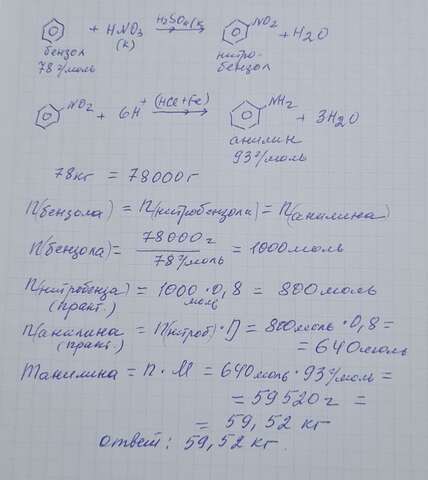 + HNO₃ H₂SO₄(к) NO₂ + H₂O
бензол (к) нитро-
78 г/моль бензол
NO₂ + 6H⁺ (HCl+Fe) NH₂ + 3H₂O
анилин
93 г/моль
78 кг = 78000 г
n(бензола) = n(нитробензола) = n(анилина)
n(бензола) = 78000 г / 78 г/моль = 1000 моль
n(нитробенза) = 1000 моль · 0,8 = 800 моль
(практ.)
n(анилина) = n(нитроб) · η = 800 моль · 0,8 =
(практ.) = 640 моль
mанилина = n · M = 640 моль · 93 г/моль =
= 59520 г =
= 59,52 кг
ответ: 59,52 кг.